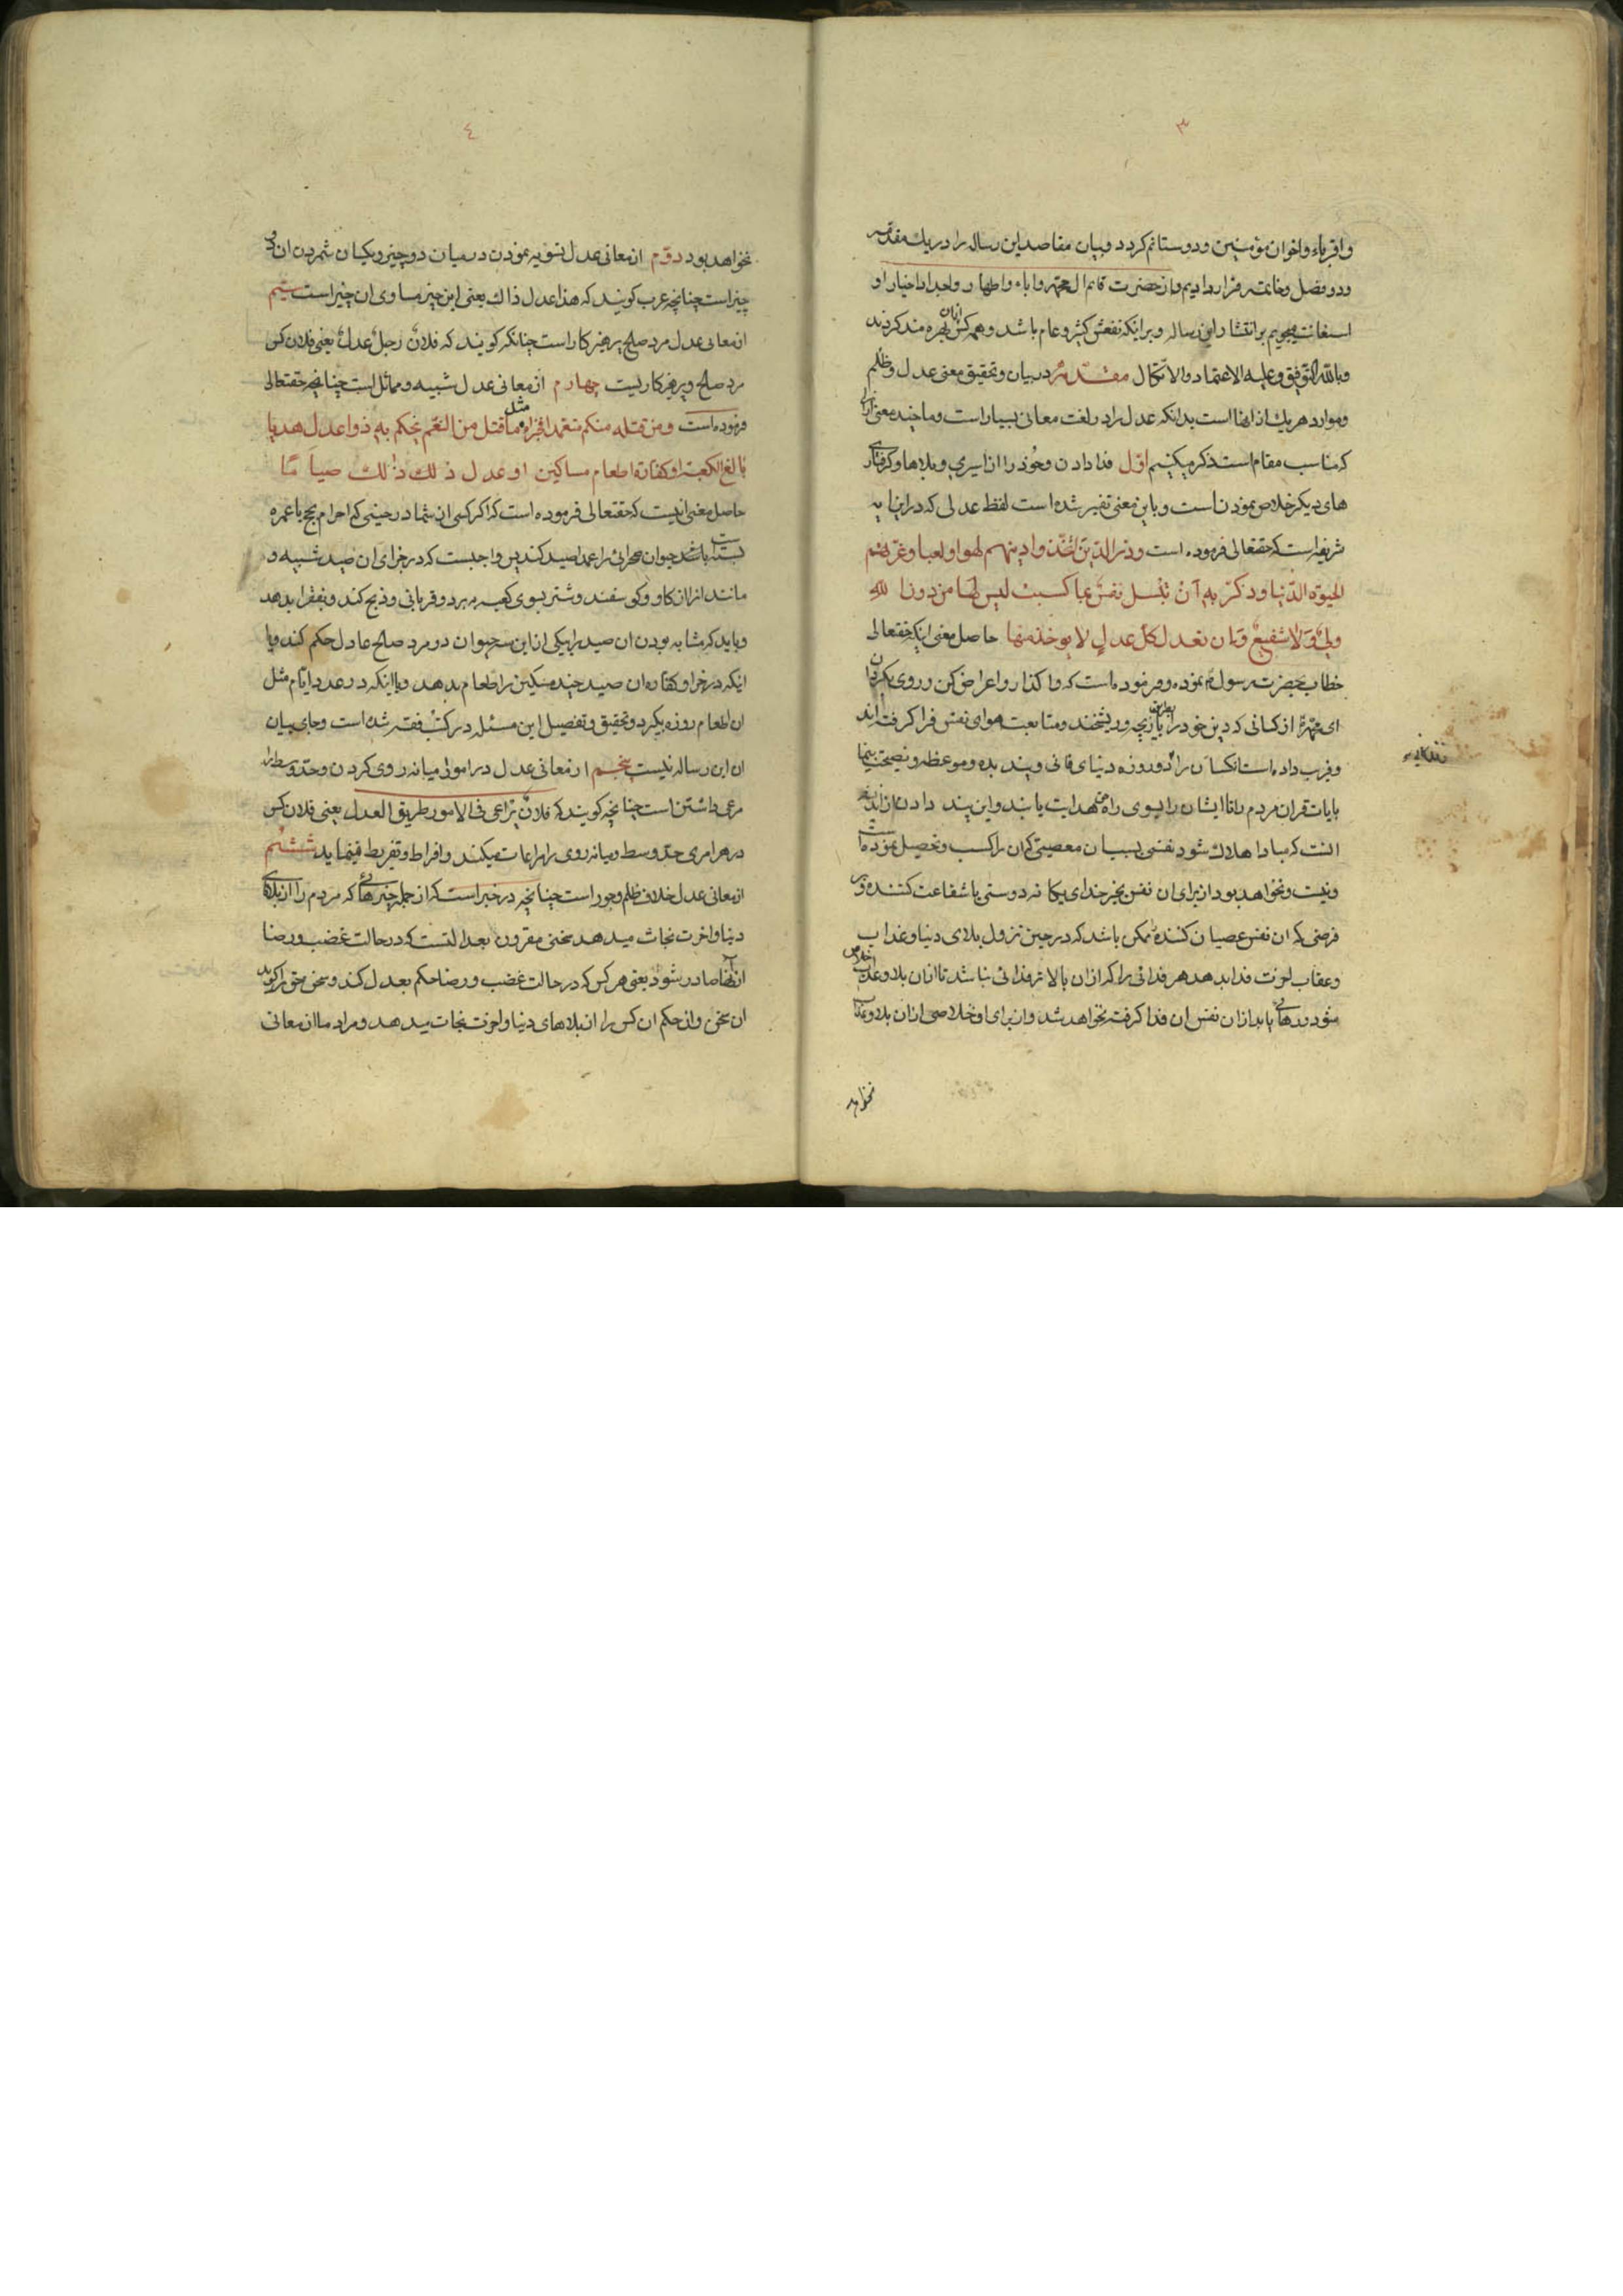 ۳
واقرباء واخوان مؤمنین ودوستانم کردد وبیان مقاصد این رساله را در یك مقدمه
ودو فصل وخاتمه قرار دادیم واز حضرت قائم ال محمد واباء واطهار واجداد اخیار او
استغانت میجویم بر انتشار این رساله وبر اینکه نفعش کثیر وعام باشد وهمه کس ازان بهره مند کردند
وبالله التوفیق وعلیه الاعتماد والاتکال مقدمه در بیان وتحقیق معنی عدل وظلم
وموارد هر یك از انها است بدانکه عدل را در لغت معانی بسیار است وما چند معنی انرا
که مناسب مقام است ذکر میکنیم اول فدا دادن وخود را از اسیری وبلاها وکرفتاری
های دیکر خلاص نمودن است وباین معنی تفسیر شده است لفظ عدلی که در این ایه
شریفه است که حقتعالی فرموده است وذر الذین اتخذوا دینهم لهوا ولعبا وغرتهم
الحیوة الدنیا وذکر به ان تبسل نفس بما کسبت لیس لها من دون الله
ولی ولا شفیع وان تعدل کل عدل لا یوخذ منها حاصل معنی اینکه حقتعالی
خطاب بحضرت رسولم نموده وفرموده است که واکذار واعراض کن وروی بکردان
ای محمد از کسانی که دین خود را بازیچه وریشخند ومتابعت هوای نفس فرا کرفته اند
وفریب داده است انکسان را دو روزه دنیای فانی وپند بده وموعظه ونصیحت بنما
بایات قران مردم را تا ایشان را بسوی راه حق هدایت یابند واین پند دادن از اینجهه
انست که مبادا هلاك شود نفسی بسبب ان معصیتی که ان را کسب وتحصیل نموده است
ونیست ونخواهد بود از برای ان نفس بغیر خدای یکانه دوستی یا شفاعت کننده وبر
فرضی که ان نفس عصیان کننده ممکن باشد که در حین نزول بلای دنیا وعذاب
وعقاب اخرت فدا بدهد هر فدائی را که ازان بالاتر فدائی نباشد تا ازان بلا وعذاب خلاص
شود ورهائی یابد ازان نفس ان فدا کرفته نخواهد شد واز برای او خلاصی ازان بلا وعذاب
نخواهد
٤
نخواهد بود دوم از معانی عدل تسویه نمودن در میان دو چیز ویکسان شمردن ان دو
چیز است چنانچه عرب کویند که هذا عدل ذاك یعنی این چیز مساوی ان چیز است سیم
از معانی عدل مرد صالح پرهیزکار است چنانکه کویند که فلان رجل عدل یعنی فلان کس
مرد صالح وپرهیزکاریست چهارم از معانی عدل شبیه ومماثل است چنانچه حقتعالی
فرموده است ومن قتله منکم متعمدا فجزاء مثل ما قتل من النعم یحکم به ذوا عدل هدیا
بالغ الکعبة او کفارة اطعام مساکین او عدل ذلك ذلك صیاما
حاصل معنی اینست که حقتعالی فرموده است که اکر کسی ازشما در حینی که احرام بحج یا عمره
بسته باشد حیوان صحرائی را عمدا صید کند پس واجبست که در جزای ان صید شبیه و
مانند انرا از کاو وکوسفند وشتر بسوی کعبه میبرد وقربانی وذبح کند وبفقرا بدهد
وباید که مشابه بودن ان صید را بیکی از این سه حیوان دو مرد صالح عادل حکم کند ویا
اینکه در جزا وکفاره ان صید چند مسکین را طعام بدهد ویا اینکه در عدد ایام مثل
ان اطعام روزه بکیرد وتحقیق وتفصیل این مسئله در کتب فقه شده است وجای بیان
ان این رساله نیست پنجم از معانی عدل در امور میانه روی کردن وحد وسط را
مرعی داشتن است چنانچه کویند که فلان یراعی فی الامور طریق العدل یعنی فلان کس
در هر امری حد وسط ومیانه روی را مراعات میکند وافراط وتفریط نمینماید ششم
از معانی عدل خلاف ظلم وجور است چنانچه در خبر است که از جمله چیزهائی که مردم را از بلاهای
دنیا واخرت نجات میدهد سخنی مقرون بعدالتست که در حالت غضب ورضا
از انها صادر شود یعنی هر کس که در حالت غضب ورضا حکم بعدل کند وسخن حق را کوید
ان سخن وان حکم ان کس را از بلاهای دنیا واخرت نجات میدهد ومراد ما از معانی